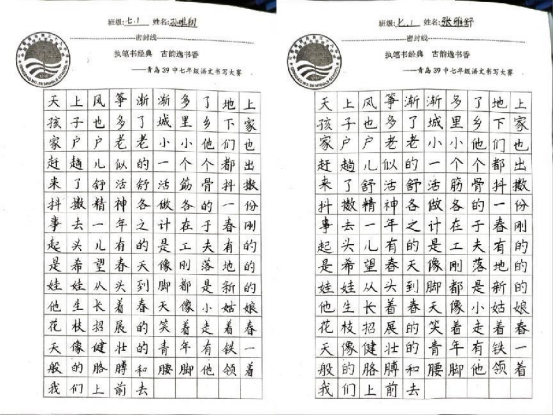 班级:七.1 姓名:
密封线
执笔书经典 古韵逸书香
——青岛39中七年级语文书写大赛
天上风筝渐渐多了地上
孩子也多了城里乡下家
家户户老老小小他们也
赶趟儿似的一个个都出
来了舒活舒活筋骨抖擞
抖擞精神各做各的一份
事去一年之计在于春刚
起头儿有的是工夫有的
是希望春天像刚落地的
娃娃从头到脚都是新的
他生长着春天像小姑娘
花枝招展的笑着走着春
天像健壮的青年有铁一
般的胳膊和腰脚他领着
我们上前去
班级:七.1 姓名:张
密封线
执笔书经典 古韵逸书香
——青岛39中七年级语文书写大赛
天上风筝渐渐多了地上
孩子也多了城里乡下家
家户户老老小小他们也
赶趟儿似的一个个都出
来了舒活舒活筋骨抖擞
抖擞精神各做各的一份
事去一年之计在于春刚
起头儿有的是工夫有的
是希望春天像刚落地的
娃娃从头到脚都是新的
他生长着春天像小姑娘
花枝招展的笑着走着春
天像健壮的青年有铁一
般的胳膊和腰脚他领着
我们上前去